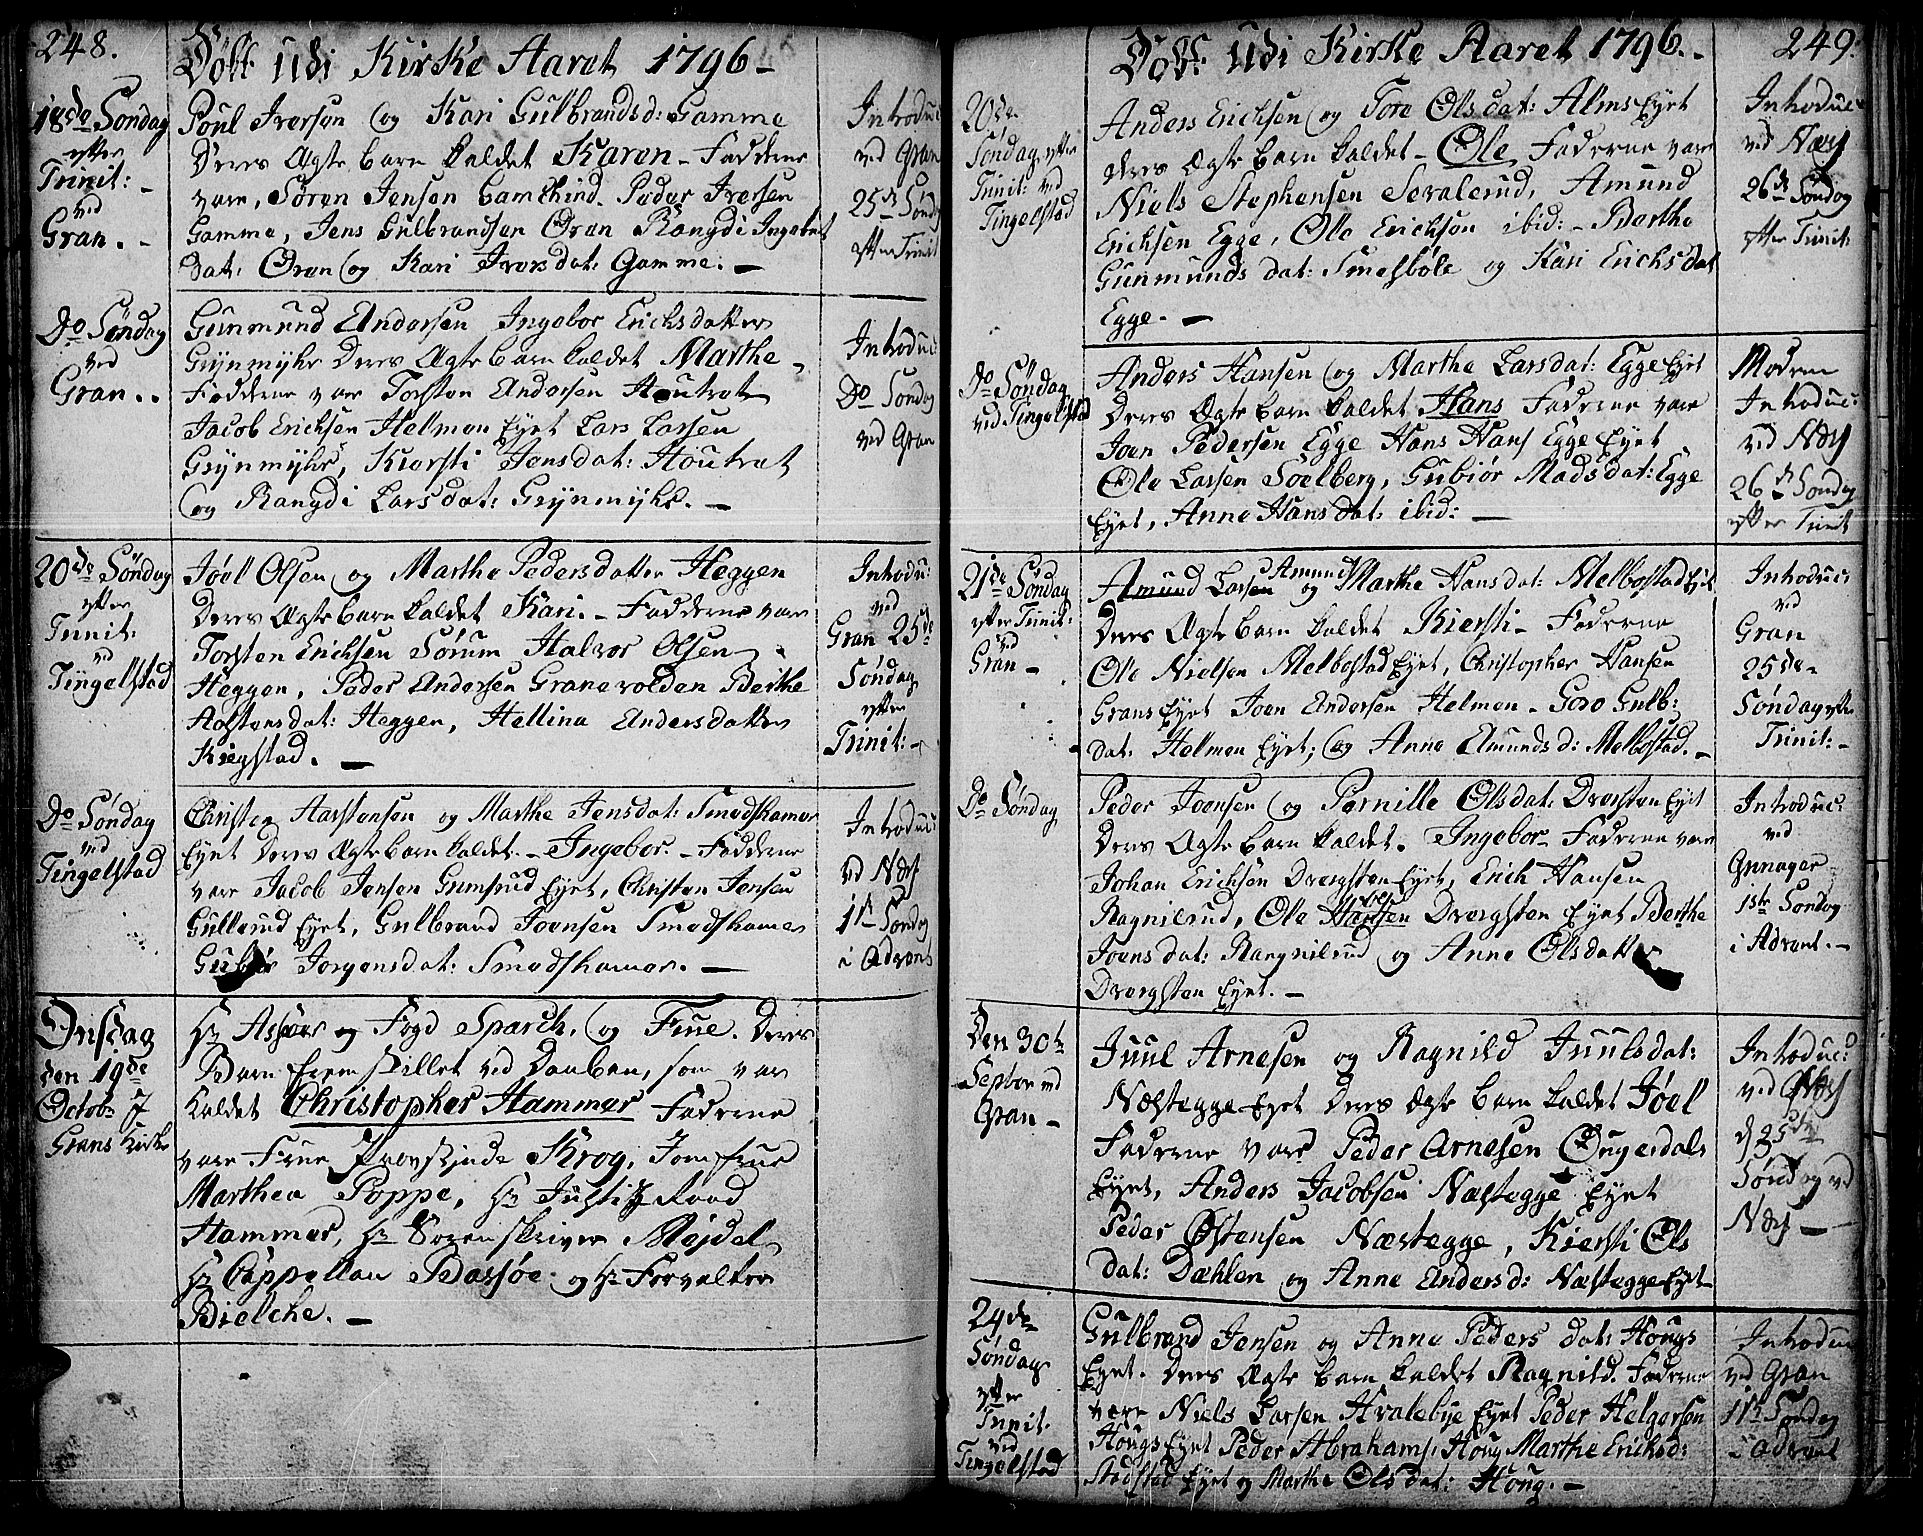 248.
Döbt udi Kirke Aaret 1796
18de Søndag
efter
Trinit:
ved
Gran.
Poul Iversøn og Kari Gulbrandsd: Gamme
Deres Ægte barn kaldet Karen - Fadderne
vare, Søren Jensen Peder Iversen
Gamme, Jens Gulbrandsen Gran Rangdi Ingebret
dat: Gran og Kari Iversdat: Gamme.
Introduc:
ved Gran
25de Sønd
efter Trinit
Do Søndag
ved
Gran.
Gunmund Andersen Ingebor Erichsdatter
Grynmyhr Deres Ægte barn kaldet Marthe
Fadderne vare Torsten Andersen Houtrat
Jacob Erichsen Helmen Eyet Lars Larsen
Grynmyhr, Kiersti Jensdat: Houtrat
og Rangdi Larsdat: Grynmyhr.
Introduc:
Do Søndag
ved Gran
20de Søndag
efter
Trinit:
ved
Tingelstad
Jøel Olsen og Marthe Pedersdatter Heggen
Deres Ægte barn kaldet Kari. - Fadderne vare
Torsten Erichsen Sørum Halvor Olsen
Heggen, Peder Andersen Granevolden Berthe
Aastensdat: Heggen, Hellina Andersdatter
Kiegstad.
Introdu:
ved
Gran 25de
Søndag
efter
Trinit:
Do Søndag
ved
Tingelstad
Christen Aastensen og Marthe Jensdat: Smedshamer
Eyet Deres Ægte barn kaldet. - Ingebor. - Fadderne
vare Jacob Jensen Grimsrud Eyet, Christen Jensen
Gullerud Eyet, Gulbrand Joensen Smedshamer
Gubiør Jorgensdat: Smedshamer.
Introduc:
ved Næs
1te Søndag
i Advent
Onsdag
den 19de
Octobr i
Grans Kirke
Hr Assessor og Fogd Sparch, og Frue. Deres
Barn frem stillet ved Daaben, som var
kaldet Christopher Hammer Fadderne
vare Frue Provstinde Krog, Jomfrue
Marthea Poppe, Hr Justitz Raad
Hammer, Hr Sorenskriver Mejdel
Hr Cappellan Bassøe og Hr Forvalter
Bielche.
249.
Döbt: udi Kirke Aaret 1796.
20de
Søndag efter
Trinit: ved
Tingelstad
Anders Erichsen og Tore Olsdat: Alms Eyet
deres Ægte barn kaldet - Ole Faderne vare
Niels Stephensen Sevalerud, Amund
Erichsen Egge, Ole Erichsen ibid: - Berthe
Gunmundsdat: Smesbøle og Kari Erichsdat
Egge.
Introduc:
ved Næs
26de Søndag
efter Trinit:
Do Søndag
ved Tingelstad
Anders Hansen og Marthe Larsdat: Egge Eyet
Deres Ægte barn kaldet Hans Faderne vare
Joen Pedersen Egge Hans Hans Egge Eyet
Ole Larsen Soelberg, Gubiør Madsdat: Egge
Eyet, Anne Hansdat: ibid:
Moderen
Introduc:
ved Næs
26de Søndag
efter Trinit
21de Søndag
efter Trinit:
ved
Gran
Amund Larsen Amund og Marthe Hansdat: Melbostad Eyet
Deres Ægte barn kaldet Kiersti - Faderne
Ole Nielsen Melbostad Eyet, Christopher Hansen
Grans Eyet Joen Andersen Helmen - Goro Gulb:
dat: Helmen Eyet; og Anne Amundsd: Melbostad.
Introduc:
ved
Gran
25de
Søndag efter
Trinit:
Do Søndag
Peder Joensen og Pernille Olsdat: Dvergsten Eyet
Deres Ægte barn kaldet. Ingebor - Faderne vare
Johan Erichsen Dvergsten Eyet, Erich Hansen
Ragnilrud, Ole Hansen Dvergsten Eyet Berthe
Joensdat: Rangnilrud og Anne Olsdatter
Dvergsten Eyet.
Introduc:
ved
Grinager
1ste Søndag
i Advent.
Den 30te
Septbr ved
Gran
Juul Arnesen og Ragnild Juulsdat:
Næstegge Eyet Deres Ægte barn kaldet Jøel
Faderne vare Peder Arnesen Ougerdals
Eyet, Anders Jacobsen Næstegge Eyet
Peder Østensen Næstegge, Kiersti Ols
dat: Dæhlen og Anne Andersd: Næstegge Eyet
Introduc:
ved Næs
d 25de
Søndag ved
Næs
24de
Søndag
efter
Trinit.
ved
Tingelstad
Gulbrand Jensen og Anne Peders dat: Hougs
Eyet. Deres Ægte barn kaldet Ragnild. Faderne
vare Niels Larsen Hvalebye Eyet Peder Helgersen
Hougs Eyet Peder Abrahams: Houg Marthe Ericksd:
Stadstad Eyet og Marthe Olsdat: Houg.
Introduc
ved Gran
1te Søndag
i Advent